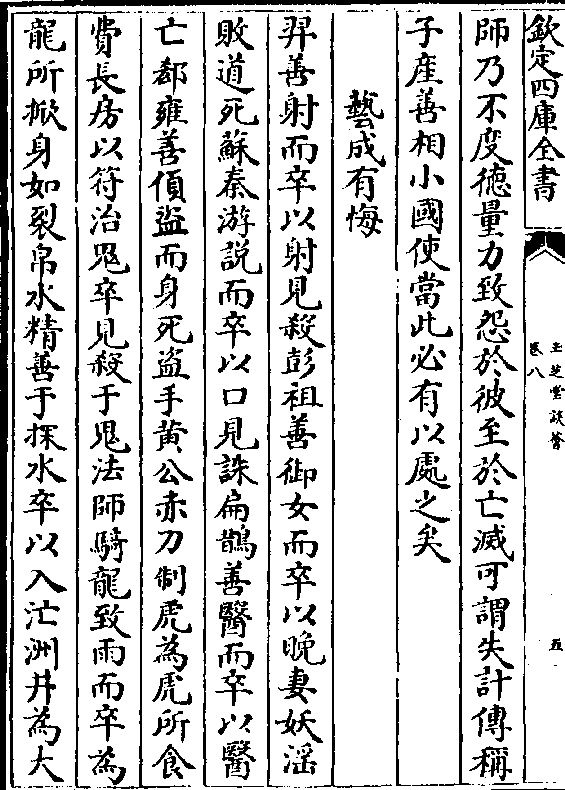 欽定四庫全書
玉芝堂談薈
卷八
五
師乃不度德量力致怨於彼至於亡滅可謂失計傳稱
子產善相小國使當此必有以處之矣
藝成有悔
羿善射而卒以射見殺彭祖善御女而卒以晚妻妖淫
敗道死蘇秦游說而卒以口見誅扁鵲善醫而卒以醫
亡郄雍善偵盜而身死盜手黃公赤刀制虎為虎所食
費長房以符治鬼卒見殺于鬼法師騎龍致雨而卒為
龍所掀身如裂帛水精善于探水卒以入茫洲井為大